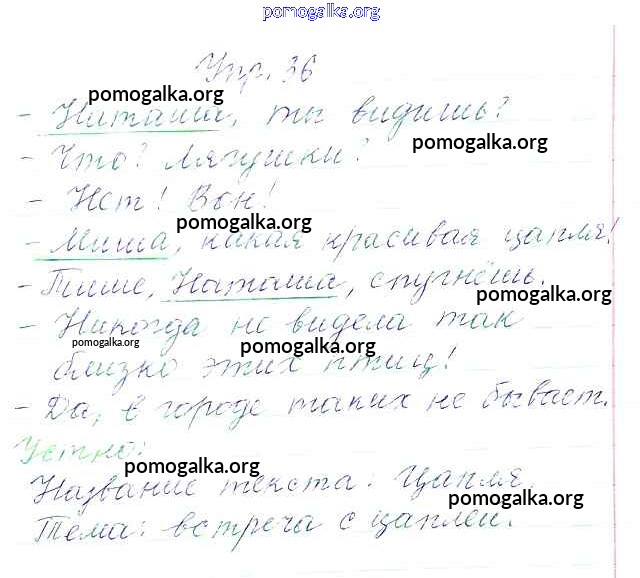 pomogalka.org
Упр. 36
pomogalka.org
- Наташа, ты видишь?
pomogalka.org
- Что? Лягушки?
- Нет! Вон!
pomogalka.org
- Миша, какая красивая цапля!
- Тише, Наташа, спугнёшь.
pomogalka.org
- Никогда не видела так
pomogalka.org
pomogalka.org
близко этих птиц!
- Да, в городе таких не бывает.
Устно:
pomogalka.org
Название текста: Цапля.
pomogalka.org
Тема: встреча с цаплей.